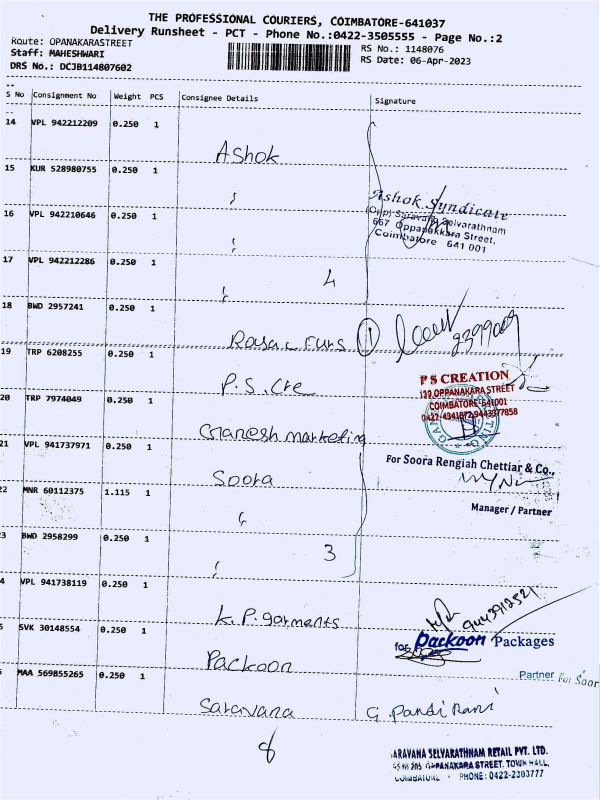 THE PROFESSIONAL COURIERS, COIMBATORE-641037
Delivery Runsheet - PCT - Phone No.:0422-3505555 - Page No.:2
Route: OPANAKARASTREET
RS No.: 1148076
Staff: MAHESHWARI
RS Date: 06-Apr-2023
DRS No.: DCJB114807602
S No Consignment No Weight PCS Consignee Details Signature
14 VPL 942212209 0.250 1
Ashok
15 KUR 528980755 0.250 1
Ashok Syndicate
(Opp) Saravana Selvarathnam
667 Oppanakkara Street,
Coimbatore 641 001
16 VPL 942210646 0.250 1
17 VPL 942212286 0.250 1
4
18 BWD 2957241 0.250 1
11
19 TRP 6208255 0.250 1
P.S. Cre
P S CREATION
OPPANAKARA STREET
COIMBATORE-641001
20 TRP 7974049 0.250 1
Ganesh marketing
21 VPL 941737971 0.250 1
Soora
For Soora Rengiah Chettiar & Co.,
Manager / Partner
22 MNR 60112375 1.115 1
23 BWD 2958299 0.250 1
3
4 VPL 941738119 0.250 1
K.P. garments
9443912521
for Packoon Packages
Partner
For Soor
5 SVK 30148554 0.250 1
Packoon
MAA 569855265 0.250 1
Saravana
G. Pandi Rani
8
ARAVANA SELVARATHNAM RETAIL PVT. LTD.
OPPANAKARA STREET, TOWN HALL,
COIMBATORE - PHONE: 0422-2303777